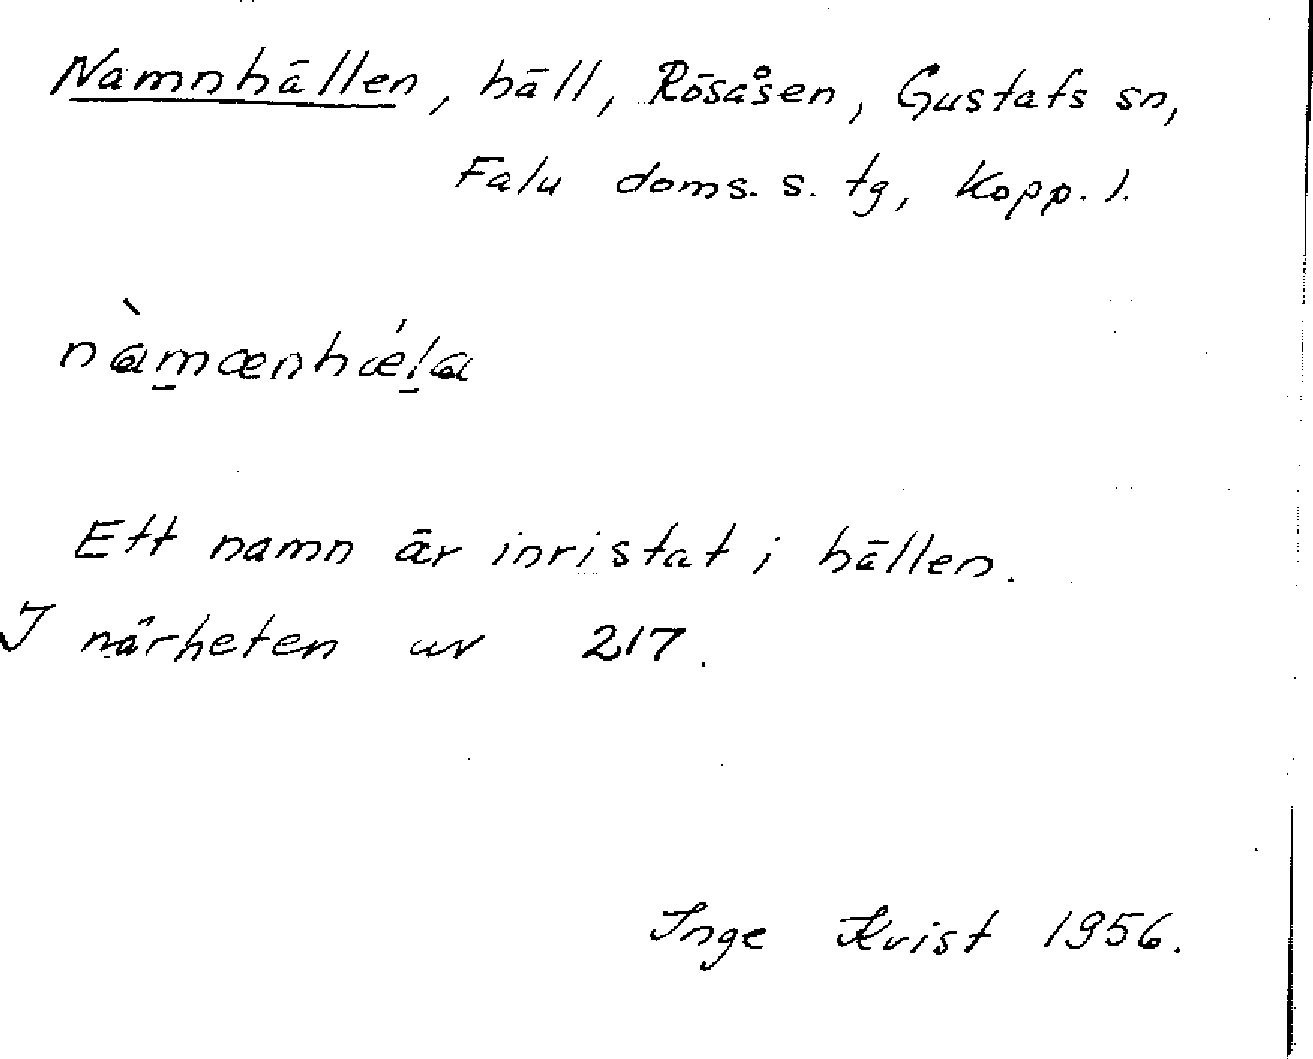 Namnhällen, häll, Rösåsen, Gustafs sn,
Falu doms. s. tg, Kopp. l.
nàmænhǽla
Ett namn är inristat i hällen.
I närheten av 217.
Inge Kvist 1956.